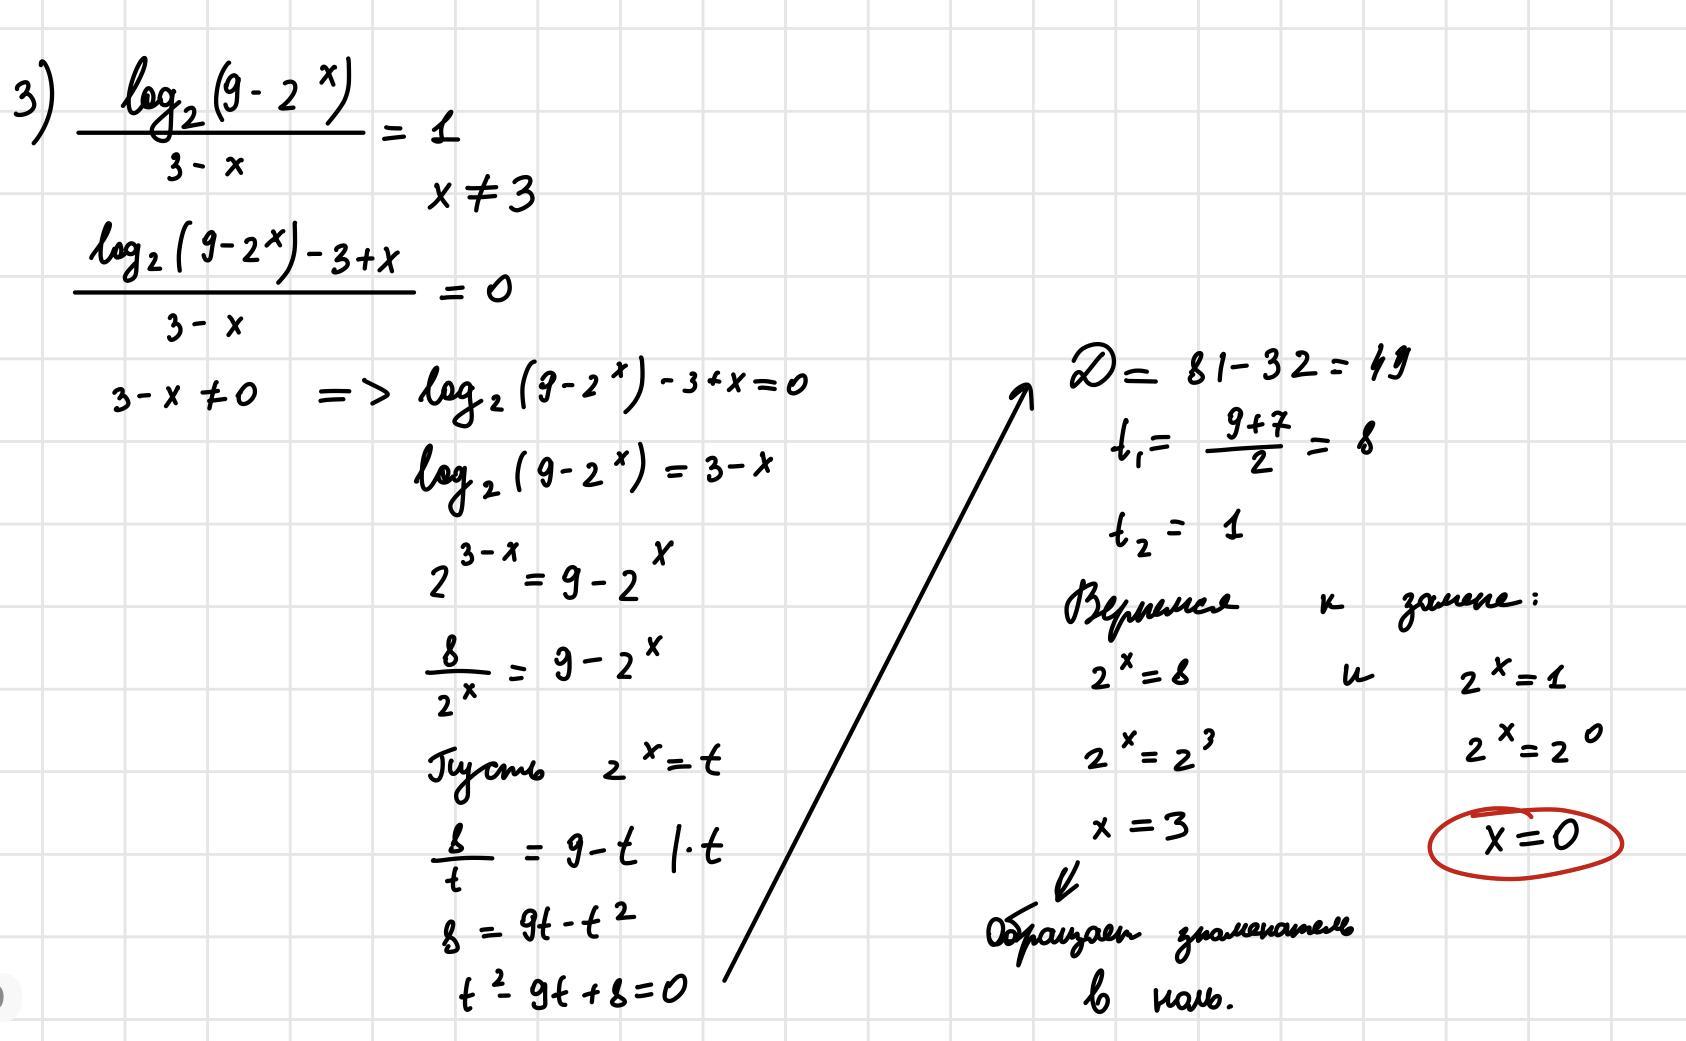 3) log₂(9 - 2^x) / (3 - x) = 1
x ≠ 3
(log₂(9-2^x) - 3 + x) / (3 - x) = 0
3 - x ≠ 0 => log₂(9-2^x) - 3 + x = 0
log₂(9-2^x) = 3 - x
2^(3-x) = 9 - 2^x
8 / 2^x = 9 - 2^x
Пусть 2^x = t
8 / t = 9 - t |·t
8 = 9t - t²
t² - 9t + 8 = 0
D = 81 - 32 = 49
t₁ = (9+7) / 2 = 8
t₂ = 1
Вернемся к замене:
2^x = 8 и 2^x = 1
2^x = 2³ 2^x = 2⁰
x = 3 x = 0
Обращает знаменатель
в ноль.